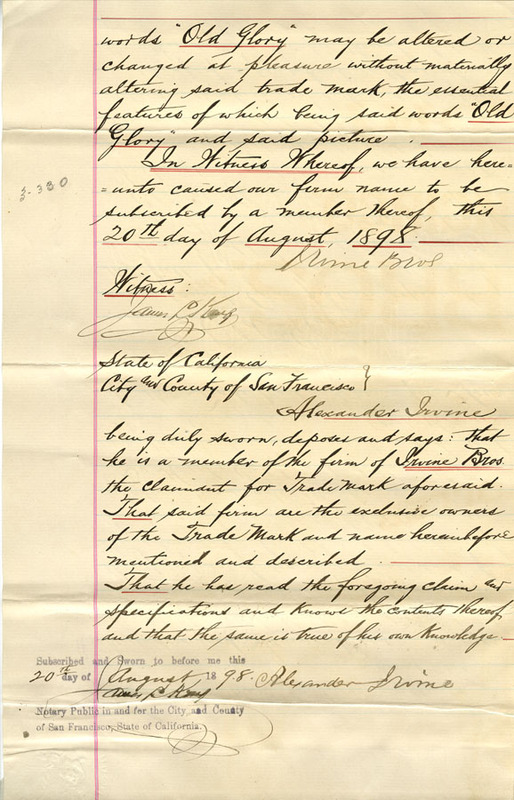 words "Old Glory" may be altered or
changed at pleasure without materially
altering said trade mark, the essential
features of which being said words "Old
Glory" and said picture.
In Witness Whereof, we have here=
=unto caused our firm name to be
subscribed by a member thereof, this
20th day of August, 1898.
3-330
Irvine Bros
Witness:
James L. King
State of California
City and County of San Francisco }
Alexander Irvine
being duly sworn, deposes and says: That
he is a member of the firm of Irvine Bros.
the claimant for Trade Mark aforesaid.
That said firm are the exclusive owners
of the Trade Mark and name hereinbefore
mentioned and described.
That he has read the foregoing claim and
specifications and knows the contents thereof
and that the same is true of his own knowledge
Subscribed and Sworn to before me this
20th day of August 1898. Alexander Irvine
James L. King
Notary Public in and for the City and County
of San Francisco, State of California.